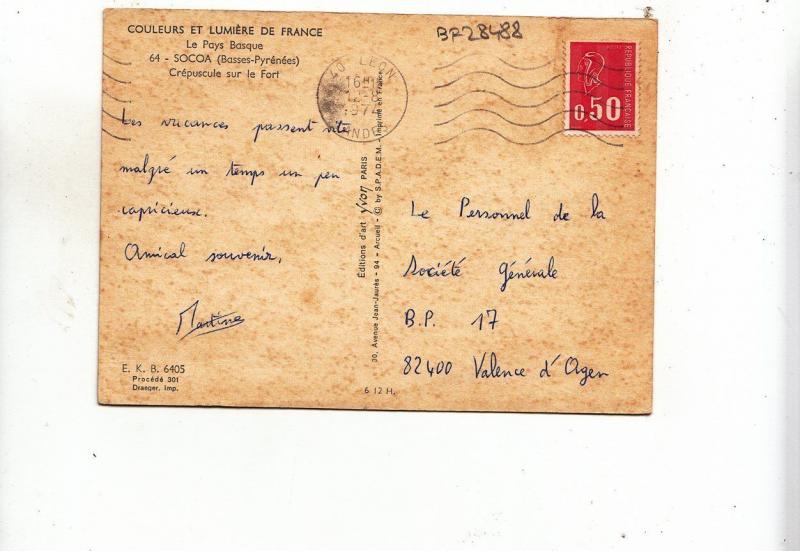 COULEURS ET LUMIÈRE DE FRANCE
Le Pays Basque
64 - SOCOA (Basses-Pyrénées)
Crépuscule sur le Fort
BF28488
40 LEON
16H
LANDES
REPUBLIQUE FRANÇAISE
0,50
Les vacances passent vite
malgré un temps un peu
capricieux.
Amical souvenir,
Martine
Editions d'art yvon PARIS
30, Avenue Jean-Jaurès - 94 - Arcueil - © by S.P.A.D.E.M. - Imprimé en France
Le Personnel de la
Société Générale
B.P. 17
82400 Valence d'Agen
E. K. B. 6405
Procédé 301
Draeger, Imp.
6 12 H.